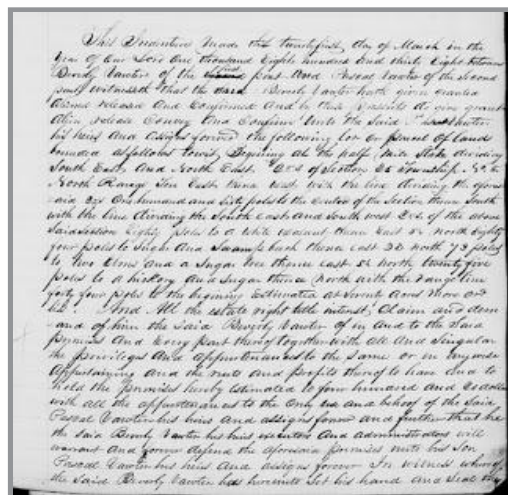 This Indenture made this twenty first day of March in the
year of Our Lord One thousand Eighte hundred and thirty Eight between
Beverly Vawter of the first part And Pascal Vawter of the Second
part Witnesseth that the Beverly Vawter hath given granted
released and Confirmed And by these presents do give grant
Alien release Convey And Confirm Unto the Said Vawter
his heirs And Assigns forever the following lot or parcel of lands
bounded as follows towit, Begining At the half mile Stake dividing
South East, And North East Qrs of Section 25 Township No.
North Range Ten East thence west with the line dividing the afore
said Qrs One hundred and Sixty poles to the Center of the Section thence South
with the line dividing the South East and South west Qrs of the above
Said Section Eighty poles to a White walnut thence East 54 North Eighty
four poles to Sugar And Swamp Beech thence East 32 North 73 poles
to two Elms and a Sugar tree thence East 54 North twenty five
poles to a hickory And Sugar thence North with the range line
forty four poles to the begining Estimated at Seventy Acres More or
less. And All the estate right title interest, Claim and dem
and of him the Said Beverly Vawter of in and to the Said
premises And Every part thereof together with all And Singular
the privileges And Appurtenances to the Same or in anywise
Appertaining And the rents and profits thereof to have and to
hold the premises hereby Estimated to four hundred and dollars
with all the appurtenances to the Only use and behoof of the Said
Pascal Vawter his heirs and assigns forever and further that he
the Said Beverly Vawter his heirs executors and administrators will
warrant and forever defend the aforesaid premises unto his Son
Pascal Vawter his heirs and assigns forever In witness whereof
the Said Beverly Vawter has hereunto Set his hand and Seal